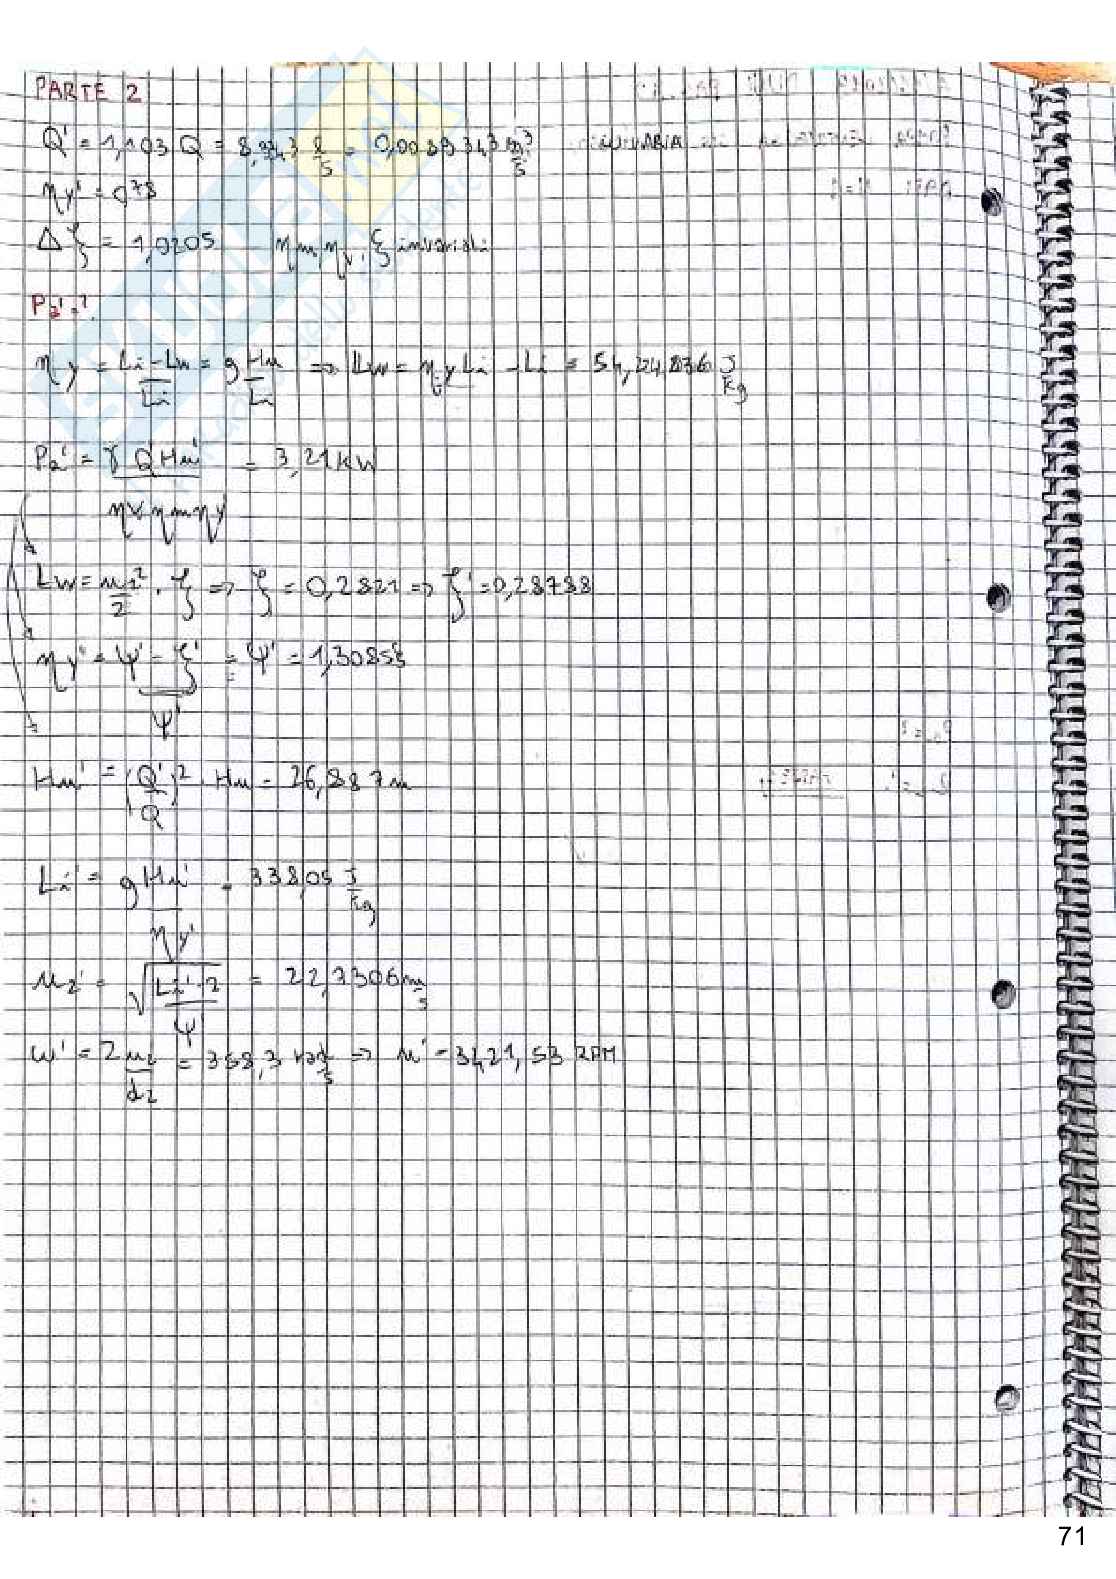 PARTE 2
Q' = 1,103 Q = 8,9343 l/s = 0,0089343 m³/s
ηy' = 0,78
Δξ = 1,0205 ηm, ηv, ξ invariati
Pa' = ?
ηy = Li - Lw / Li = g Hu / Li => Lw = ηy Li - Li = 54,224836 J/kg
Pa' = γ Q' Hu' / ηv ηm ηy' = 3,21 kW
Lw = u2²/2 · ξ => ξ = 0,2821 => ξ' = 0,28788
ηy' = ψ' - ξ' / ψ' = ψ' = 1,30855
Hu' = (Q'/Q)² · Hu = 26,887 m
Li' = g Hu' / ηy' = 338,05 J/kg
u2' = √(Li' · 2 / ψ') = 22,7306 m/s
ω' = 2 u2 / d2 = 358,3 rad/s => n' = 3421,53 RPM
71